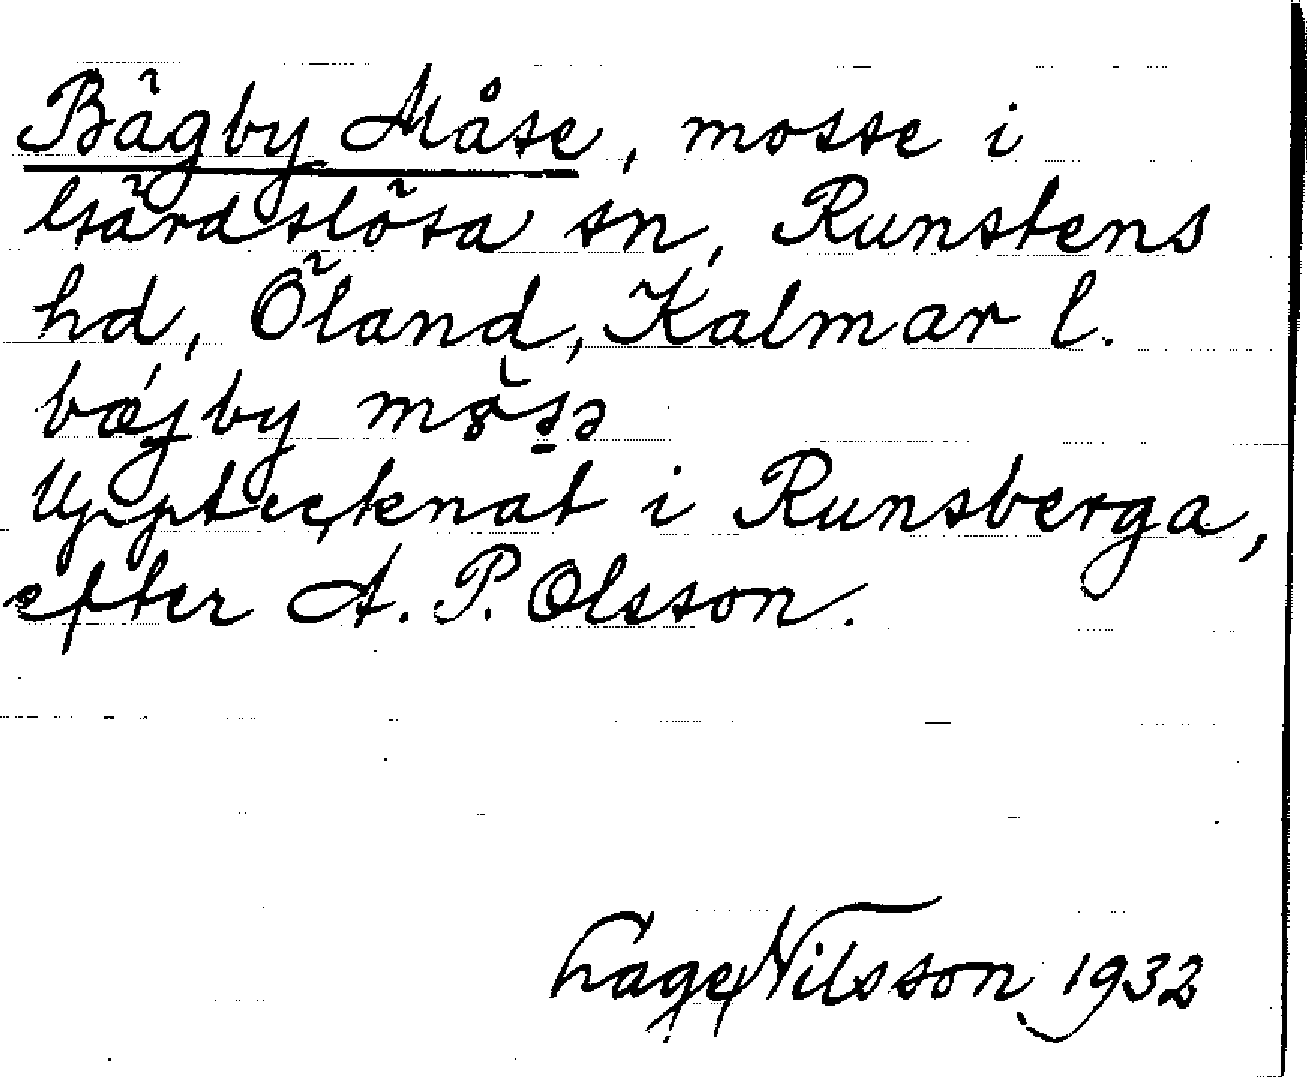 Bägby Måse, mosse i
Gärdslösa sn, Runstens
hd, Öland, Kalmar l.
Upptecknat i Runsberga,
efter A. P. Olsson.
Nilsson 1932